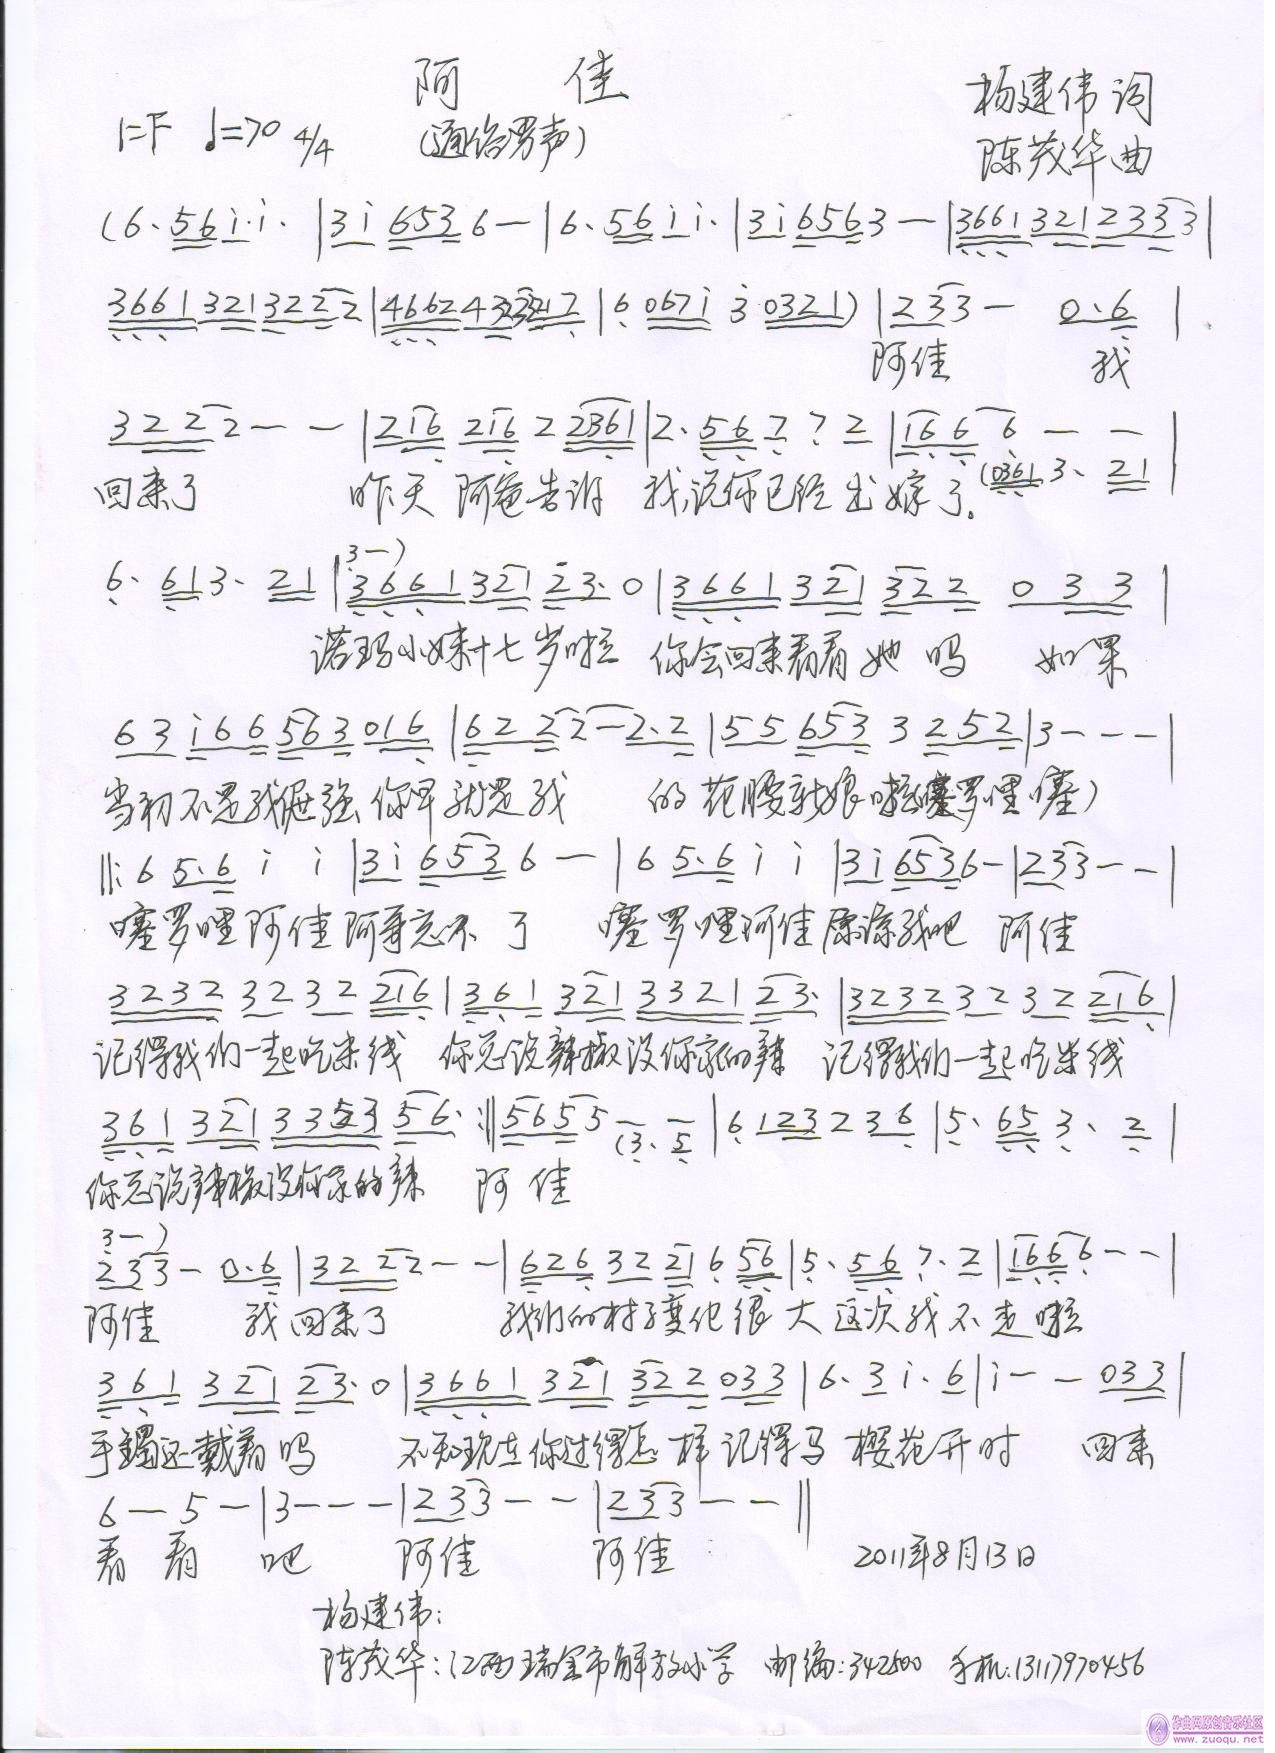 阿 佳
杨建伟 词
1=F ♩=70 4/4 (通俗男声)
陈茂华 曲
(6· 5 6 i· i· | 3 i 6 5 3 6 — | 6· 5 6 i i· | 3 i 6 5 6 3 — | 3 6 6 1 3 2 1 2 3 3 3 |
3 6 6 1 3 2 1 3 2 2 2 2 | 4 6 6 2 4 3 | 6 0 6 7 i 3 0 3 2 1) | 2 3 3 — 0· 6 |
阿佳 我
3 2 2 2 2 — — | 2 1 6 2 1 6 2 2 3 6 1 | 2· 5 6 7 7 2 | 1 6 6 6 — — |
(0 3 6 1 3· 2 1
回来了 昨天 阿爸告诉 我,说你已经出嫁了。
3 —)
6· 6 1 3· 2 1 | 3 6 6 1 3 2 1 2 3· 0 | 3 6 6 1 3 2 1 3 2 2 2 0 3 3 |
诺玛小妹十七岁啦 你会回来看看她吗 如果
6 3 i 6 6 5 6 3 0 1 6 | 6 2 2 2 — 2· 2 | 5 5 6 5 3 3 2 5 2 | 3 — — — |
当初不是我倔强 你早就是我 的花腰新娘啦(噻罗哩噻)
‖: 6 5· 6 i i | 3 i 6 5 3 6 — | 6 5· 6 i i | 3 i 6 5 3 6 — | 2 3 3 — — |
噻罗哩阿佳阿哥忘不了 噻罗哩阿佳原谅我吧 阿佳
3 2 3 2 3 2 3 2 2 1 6 | 3 6 1 3 2 1 3 3 2 1 2 3· | 3 2 3 2 3 2 3 2 2 1 6 |
记得我们一起吃米线 你总说辣椒没你家的辣 记得我们一起吃米线
3 6 1 3 2 1 3 3 5 3 5 6· :‖ 5 6 5 5 — — | 6 1 2 3 2 3 6 | 5· 6 5 3· 2 |
(3· 5
你总说辣椒没你家的辣 阿佳
3 —)
2 3 3 — 0· 6 | 3 2 2 2 2 — — | 6 2 6 3 2 2 1 6 5 6 | 5· 5 6 7· 2 | 1 6 6 6 — — |
阿佳 我回来了 我们的村子变化很大 这次我不走啦
3 6 1 3 2 1 2 3· 0 | 3 6 6 1 3 2 1 3 2 2 0 3 3 | 6· 3 i· 6 | i — — 0 3 3 |
手镯还戴着吗 不知现在你过得怎样 记得马樱花开时 回来
6 — 5 — | 3 — — — | 2 3 3 — — | 2 3 3 — — ‖
看看吧 阿佳 阿佳 2011年8月13日
杨建伟:
陈茂华:江西瑞金市解放小学 邮编:342500 手机:13117970456
作曲网原创音乐社区
www.zuoqu.net